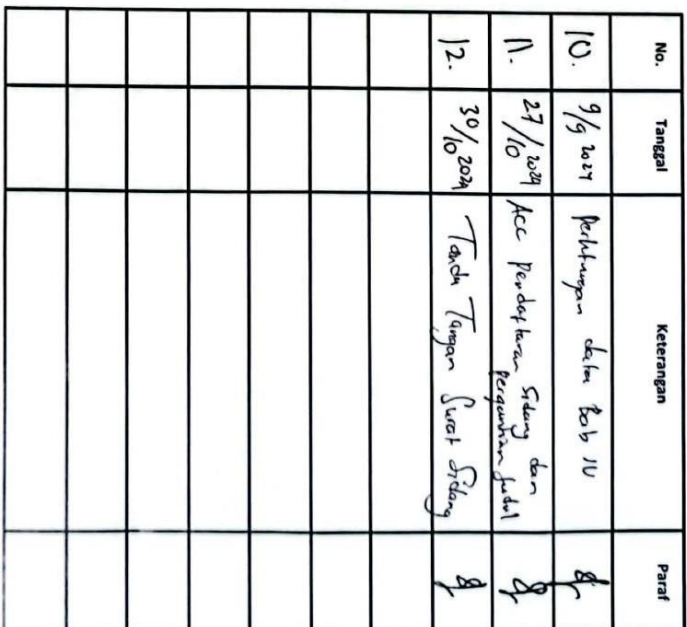 No. Tanggal Keterangan Paraf
10. 9/9 2024 Perhitungan data Bab IV
11. 27/10 2024 Acc Pendaftaran Sidang dan
pergantian judul
12. 30/10 2024 Tanda Tangan Surat Sidang